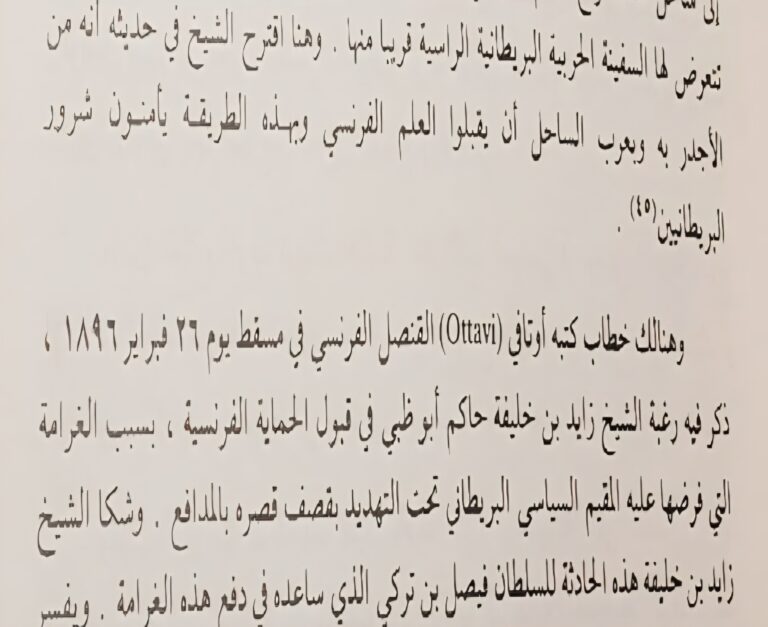 إلى ساحل
تتعرض لها السفينة الحربية البريطانية الراسية قريبا منها . وهنا اقترح الشيخ في حديثه أنه من
الأجدر به وبعرب الساحل أن يقبلوا العلم الفرنسي وبهذه الطريقة يأمنون شرور
البريطانيين(٤٥) .
وهنالك خطاب كتبه أوتافي (Ottavi) القنصل الفرنسي في مسقط يوم ٢٦ فبراير ١٨٩٦ ،
ذكر فيه رغبة الشيخ زايد بن خليفة حاكم أبو ظبي في قبول الحماية الفرنسية ، بسبب الغرامة
التي فرضها عليه المقيم السياسي البريطاني تحت التهديد بقصف قصره بالمدافع . وشكا الشيخ
زايد بن خليفة هذه الحادثة للسلطان فيصل بن تركي الذي ساعده في دفع هذه الغرامة . ويفسر